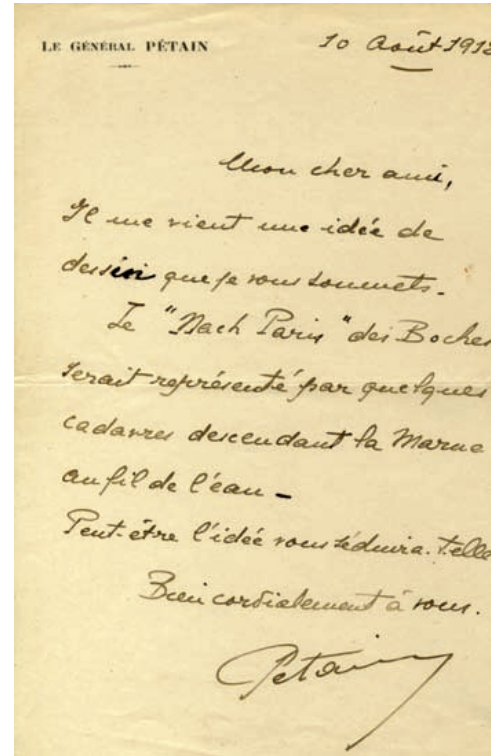 LE GÉNÉRAL PÉTAIN
10 Août 1918
Mon cher ami,
Il me vient une idée de
dessin que je vous soumets.
Le "Nach Paris" des Boches
serait représenté par quelques
cadavres descendant la Marne
au fil de l'eau –
Peut-être l'idée vous séduira-t-elle
Bien cordialement à vous.
Pétain